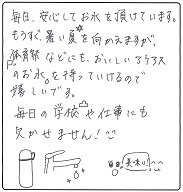 毎日、安心してお水を頂けています。
もうすぐ暑い夏を向かえますが、
体育祭などにも、おいしいアクアクララ
のお水を持っていけるので
嬉しいです。
毎日の学校や仕事にも
欠かせません！
美味い！